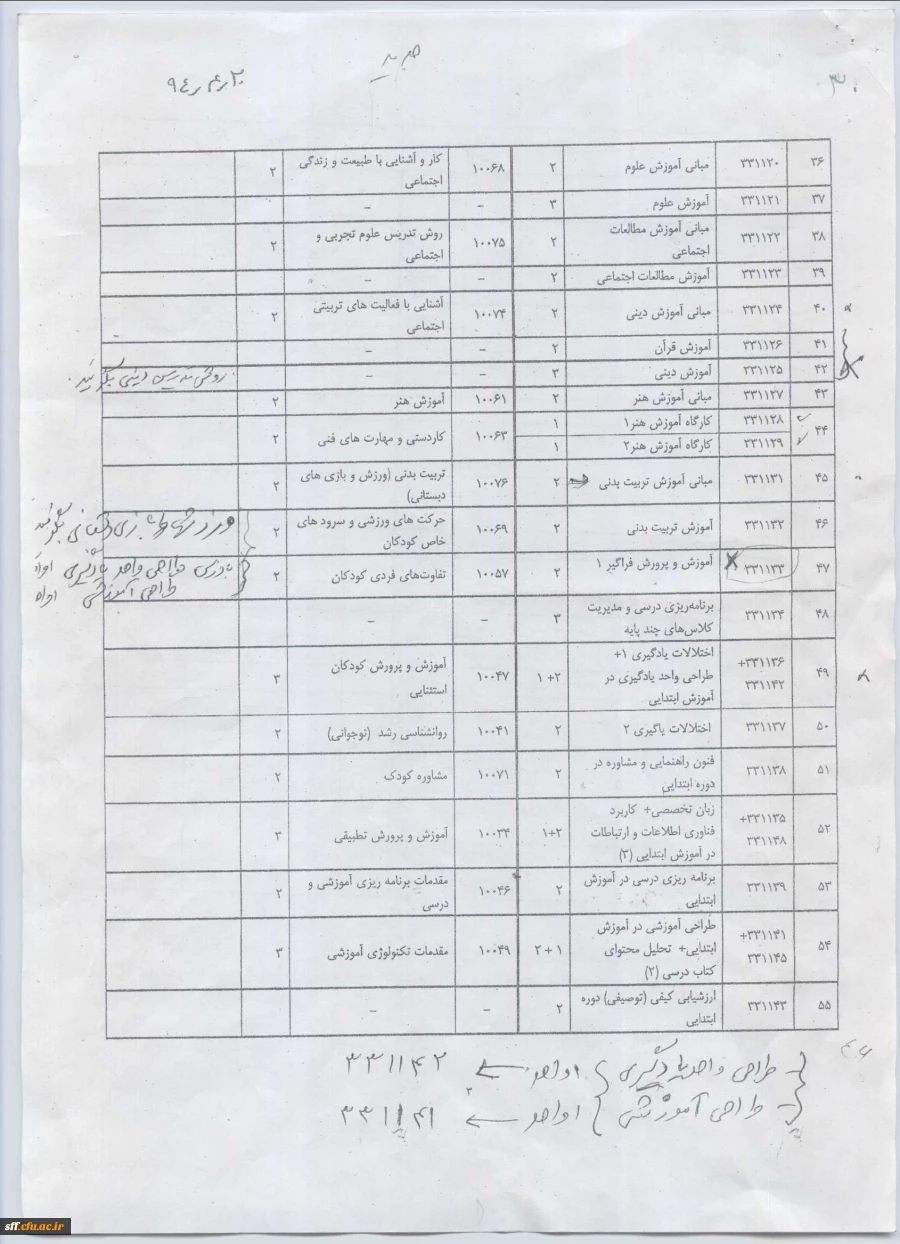 جدید
۳۶ ۳۳۱۱۲۰ مبانی آموزش علوم ۲ ۱۰۰۶۸ کار و آشنایی با طبیعت و زندگی
اجتماعی ۲
۳۷ ۳۳۱۱۲۱ آموزش علوم ۳ - -
۳۸ ۳۳۱۱۲۲ مبانی آموزش مطالعات ۲ ۱۰۰۷۵ روش تدریس علوم تجربی و ۲
اجتماعی اجتماعی
۳۹ ۳۳۱۱۲۳ آموزش مطالعات اجتماعی ۲ - -
۴۰ ۳۳۱۱۲۴ مبانی آموزش دینی ۲ ۱۰۰۷۴ آشنایی با فعالیت های تربیتی ۲
اجتماعی
۴۱ ۳۳۱۱۲۶ آموزش قرآن ۲ - -
۴۲ ۳۳۱۱۲۵ آموزش دینی ۳ - - روش تدریس دینی بگیرند.
۴۳ ۳۳۱۱۲۷ مبانی آموزش هنر ۲ ۱۰۰۶۱ آموزش هنر ۲
۴۴ ۳۳۱۱۲۸ کارگاه آموزش هنر۱ ۱ ۱۰۰۶۳ کاردستی و مهارت های فنی ۲
۳۳۱۱۲۹ کارگاه آموزش هنر۲ ۱
۴۵ ۳۳۱۱۳۱ مبانی آموزش تربیت بدنی ۲ ۱۰۰۷۶ تربیت بدنی (ورزش و بازی های ۲
دبستانی)
۴۶ ۳۳۱۱۳۲ آموزش تربیت بدنی ۲ ۱۰۰۶۹ حرکت های ورزشی و سرود های ۲
خاص کودکان
۴۷ ۳۳۱۱۳۳ آموزش و پرورش فراگیر ۱ ۲ ۱۰۰۵۷ تفاوت‌های فردی کودکان ۲
طراحی واحد یادگیری
طراحی آموزشی
۴۸ ۳۳۱۱۳۴ برنامه‌ریزی درسی و مدیریت ۳ - -
کلاس‌های چند پایه
۴۹ ۳۳۱۱۳۶+ اختلالات یادگیری ۱+ ۲+ ۱ ۱۰۰۴۷ آموزش و پرورش کودکان ۳
۳۳۱۱۴۲ طراحی واحد یادگیری در استثنایی
آموزش ابتدایی
۵۰ ۳۳۱۱۳۷ اختلالات یاگیری ۲ ۲ ۱۰۰۴۱ روانشناسی رشد (نوجوانی) ۲
۵۱ ۳۳۱۱۳۸ فنون راهنمایی و مشاوره در ۲ ۱۰۰۷۱ مشاوره کودک ۲
دوره ابتدایی
۵۲ ۳۳۱۱۳۵+ زبان تخصصی+ کاربرد ۲+۱ ۱۰۰۳۴ آموزش و پرورش تطبیقی ۳
۳۳۱۱۴۸ فناوری اطلاعات و ارتباطات
در آموزش ابتدایی (۳)
۵۳ ۳۳۱۱۳۹ برنامه ریزی درسی در آموزش ۲ ۱۰۰۴۶ مقدمات برنامه ریزی آموزشی و ۲
ابتدایی درسی
۵۴ ۳۳۱۱۴۱+ طراحی آموزشی در آموزش ۱ + ۲ ۱۰۰۴۹ مقدمات تکنولوژی آموزشی ۳
۳۳۱۱۴۵ ابتدایی+ تحلیل محتوای
کتاب درسی (۲)
۵۵ ۳۳۱۱۴۳ ارزشیابی کیفی (توصیفی) دوره ۲ - -
ابتدایی
- طراحی واحد یادگیری } ۱ واحد ← ۳۳۱۱۴۲
- طراحی آموزشی } ۱ واحد ← ۳۳۱۱۴۱
sff.cfu.ac.ir